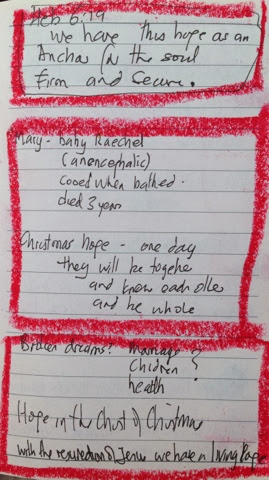 Heb 6:19
We have this hope as an
Anchor for the soul
firm and secure.
Mary - Baby Raechel
(anencephalic)
cooed when bathed.
died 3 years
Christmas hope - one day
they will be togethe
and know each other
and be whole
Broken dreams? marriage
children ?
health
Hope in the Christ of Christmas
with the resurrection of Jesus we have a living hope